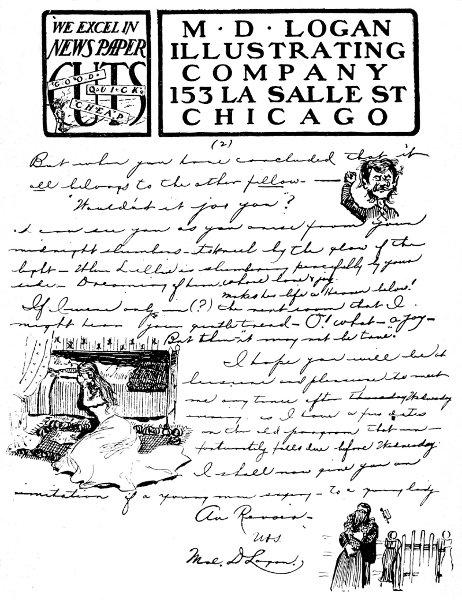 WE EXCEL IN
NEWS PAPER
CUTS
GOOD
QUICK
CHEAP
M·D·LOGAN
ILLUSTRATING
COMPANY
153 LA SALLE ST
CHICAGO
(2)
But when you have concluded that it
all belongs to the other fellow—
"Wouldn't it jar you"?
I can see you as you arise from your
midnight slumbers— by the glow of the
light— When is slumbering peacefully by your
side— Dreaming of him, whose love & joy
makes his life a Heaven below!
If I were only —(?) the next room that I
might hear your gentle tread— O! what a joy—
But then "it may not be true."
I hope you will be at
leisure and pleasure to meet
me any time after Wednesday
as I have a few dates
on the old program that un-
fortunately falls due before Wednesday
I shall now give you an
imitation of a young man saying— to a young lady
Au Revoir—
Mal. D Logan.